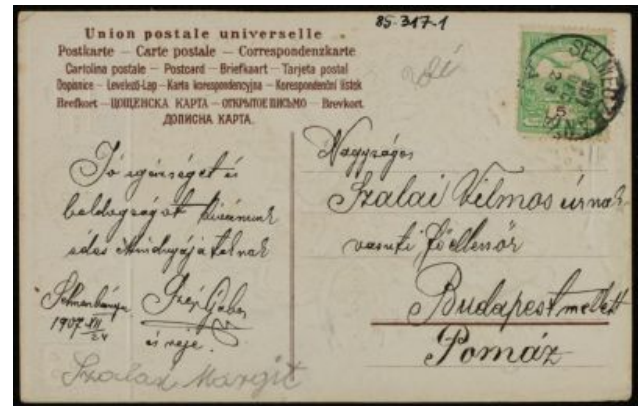 85-317-1
Union postale universelle
Postkarte — Carte postale — Correspondenzkarte
Cartolina postale — Postcard — Briefkaart — Tarjeta postal
Dopisnice — Levelező-Lap — Karta korespondencyjna — Korespondenční lístek
Brefkort — ЦОЩЕНСКА КАРТА — ОТКРЫТОЕ ПИСЬМО — Brevkort
ДОПИСНА КАРТА.
Jó egésséget és
boldogságot kivánunk
édes mindnyájatoknak
Selmecbánya
1907 XII/24
Szép Gabor
és neje.
Szalax Margit
Nagyságos
Szalai Vilmos úrnak
vasuti főellenőr
Budapest mellett
Pomáz